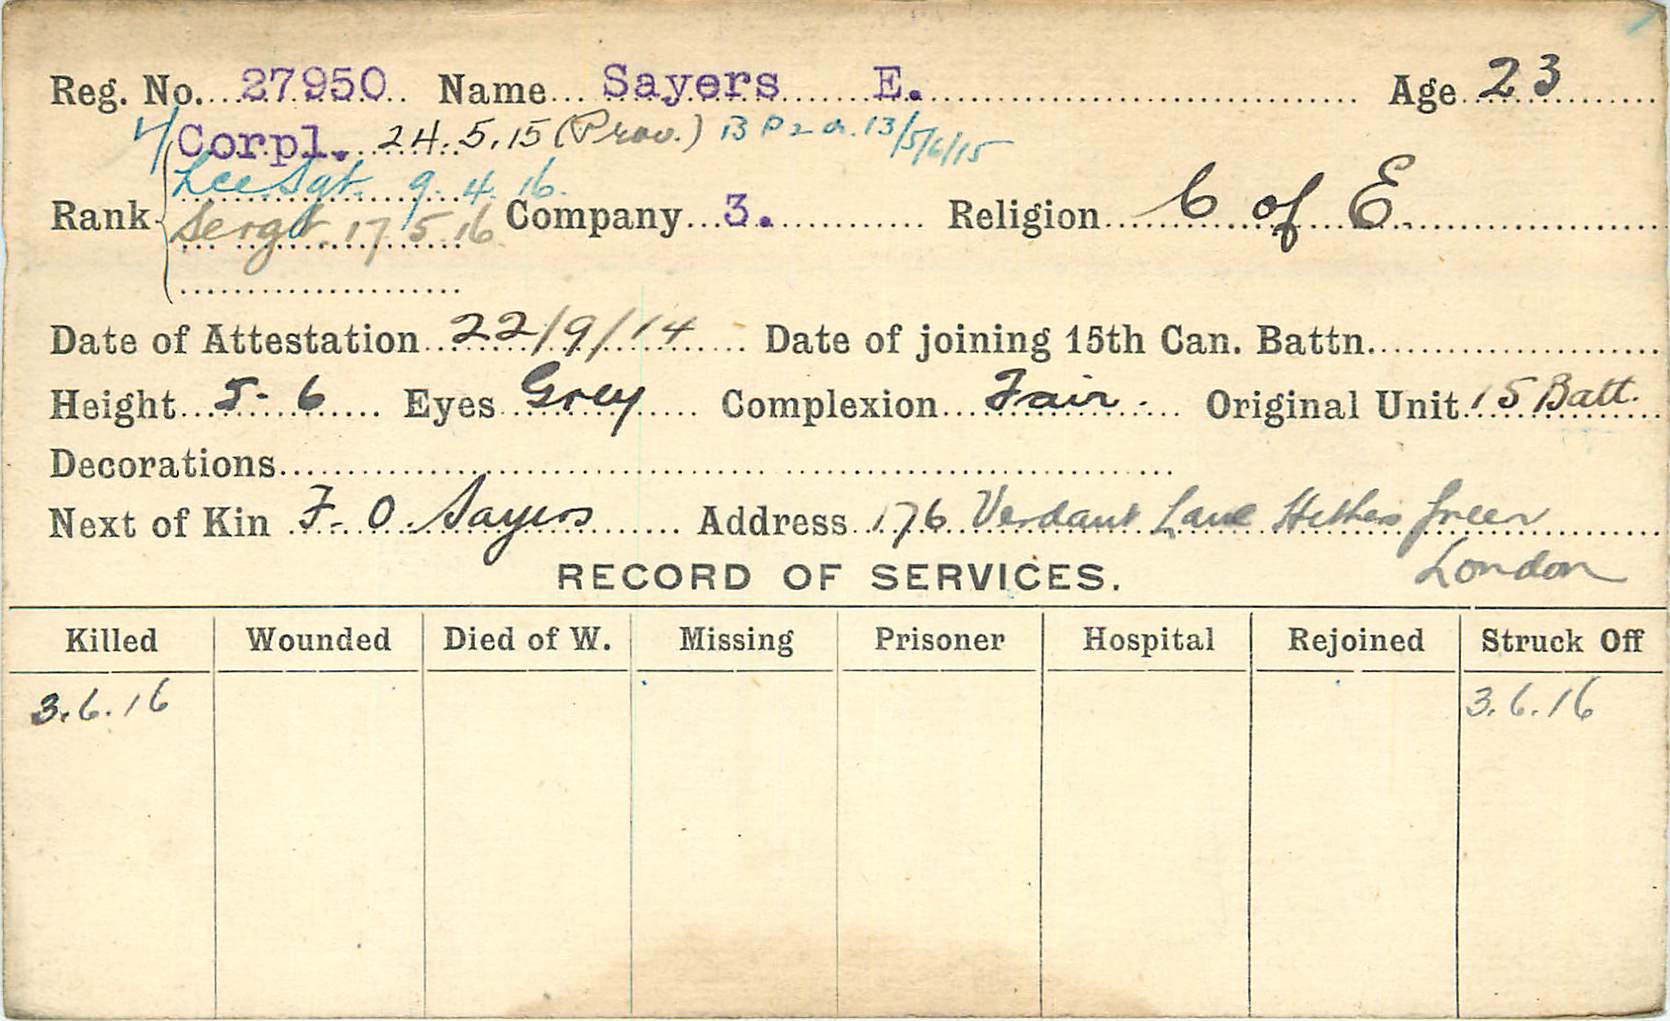 Reg. No. 27950 Name Sayers E. Age 23
Corpl. 24.5.15 (Prov.) 13/5/6/15
Lce Sgt. 9.4.16.
Rank Sergt. 17.5.16 Company 3. Religion C of E.
Date of Attestation 22/9/14 Date of joining 15th Can. Battn.
Height 5-6 Eyes Grey Complexion Fair. Original Unit 15 Batt.
Decorations
Next of Kin F. O. Sayers Address 176 Verdant Lane Hither Green
London
RECORD OF SERVICES.
Killed Wounded Died of W. Missing Prisoner Hospital Rejoined Struck Off
3.6.16 3.6.16